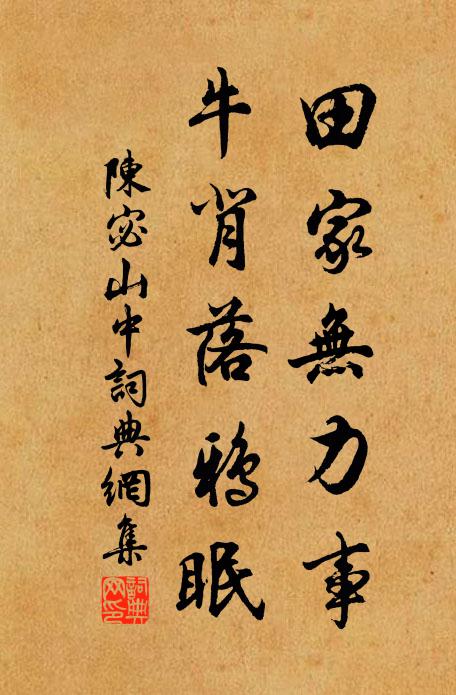 田家無力事
牛背落鴉眠
陳宓山中詞典網集
詞典網印